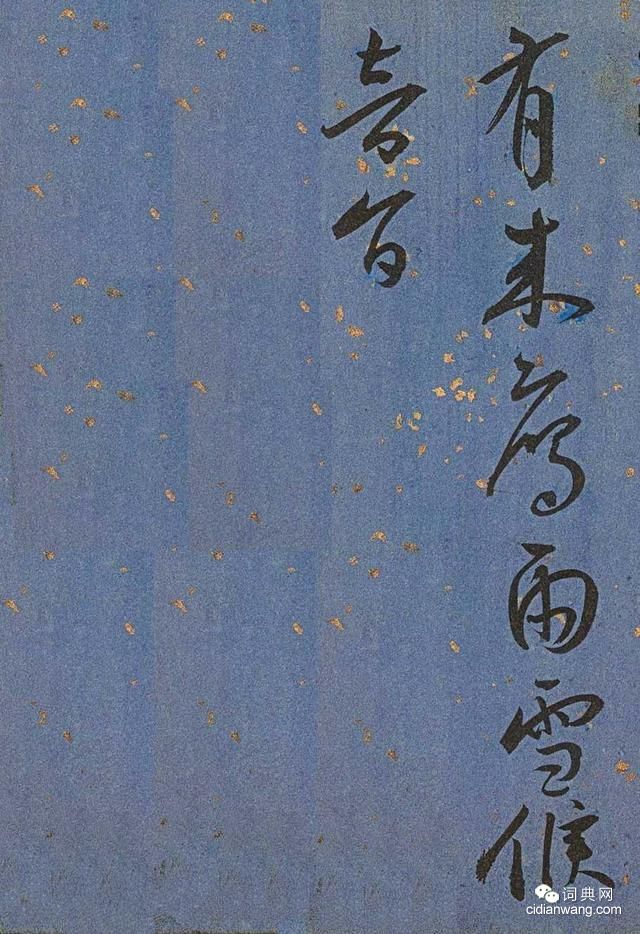 有来鴈雨雪候
音旨
词典网
cidianwang.com